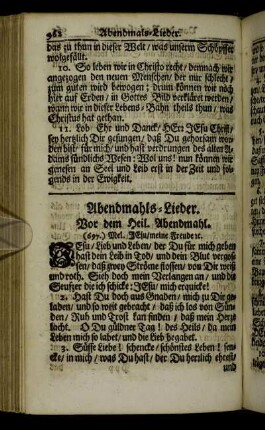 982 Abendmals-Lieder.
das zu thun in dieser Welt/ was unserm Schöpffer
wolgefällt.
10. So leben wir in Christo recht/ dennoch wir
angezogen den neuen Menschen/ der nur schlecht/
zum guten wird bewogen; drum können wir noch
hier auf Erden/ in Gottes Bild verkläret werden/
warum wir in dieser Lebens-Bahn theils thun/ was
Christus hat gethan.
11. Lob/ Ehr und Danck/ HErr JEsu Christ/
sey herzlich Dir gesungen/ daß Du gehorsam wor-
den bist/ für mich/ und hast verdrungen des alten A-
dams sündlichs Wesen: Wol uns! nun können wir
genesen an Seel und Leib erst in der Zeit und fol-
gends in der Ewigkeit.
Abendmahls-Lieder.
Vor dem Heil. Abendmahl.
(697.) Mel. JEsu/meine Freude ꝛc.
JEsu/ Lieb und Leben/ der Du für mich geben
hast dein Leib in Tod/ und dein Blut vergos-
sen/ daß zwey Ströme flossen/ von Dir weiß
und roth. Sieh doch mein Verlangen an/ und die
Seufzer die ich schicke: JEsu/ mich erquicke!
2. Hast Du doch aus Gnaden/ mich zu Dir ge-
laden/ und so weit gebracht/ daß ich los von Sün-
den/ Ruh und Trost kan finden/ daß mein Herze
lacht. O Du güldner Tag! des Heils/ da mein
Leben mich so labet/ und die Lieb begabet.
3. Süsse Liebe! schencke/ schönstes Leben! sen-
cke/ in mich/ was Du hast/ der Du herzlich ehrest/
und